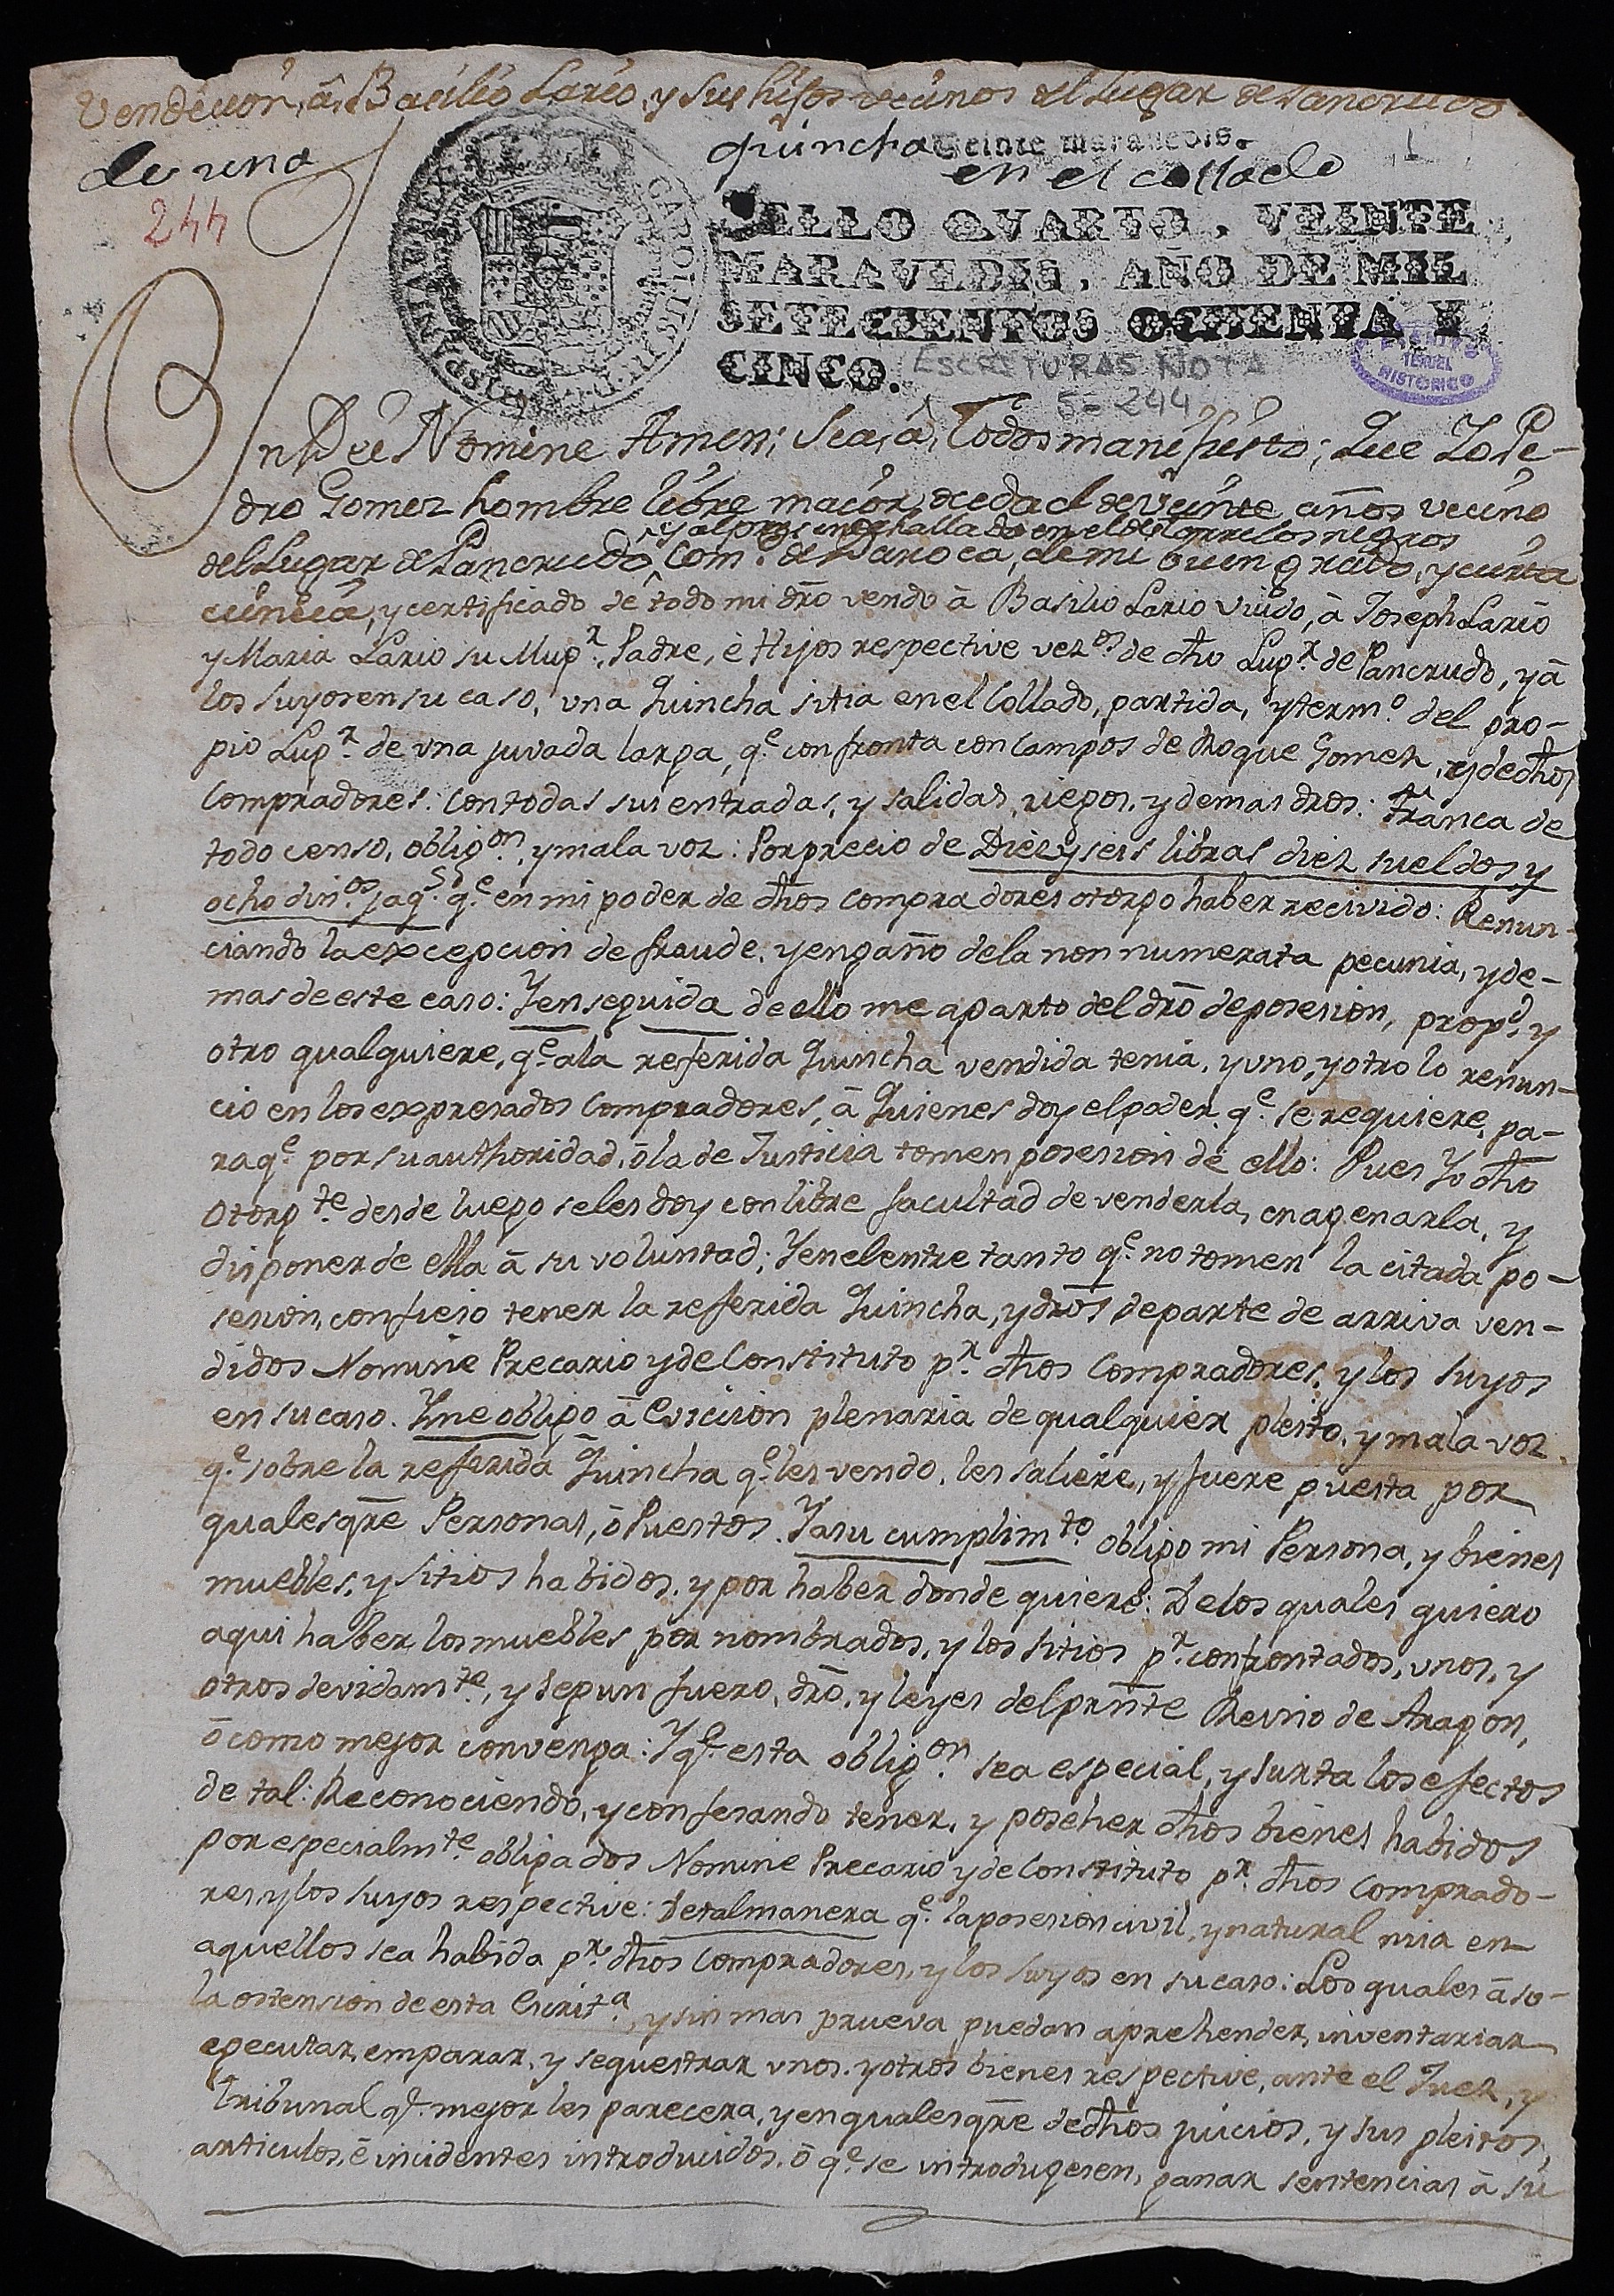 Vendicion, â Bacilio Lario, y sus hijos vecinos del Lugar de Pancrudo
de una quincha en el collado
Veinte maravedis.
1
244
SELLO QVARTO, VEINTE
MARAVEDIS, AÑO DE MIL
SETECIENTOS OCHENTA Y
CINCO.
ESCRITURAS NOTA
S- 244
TERUEL
HISTORICO
In Dei Nomine Amen; Sea, â, Todos manifiesto; Que Yo Pe-
dro Gomez hombre libre maior de edad de veinte años vecino
y al presente hallado en el de Torre los negros
del Lugar de Pancrudo Com.d de Daroca, de mi buen grado, y cierta
ciencia, y certificado de todo mi dro vendo â Basilio Lario Viudo, â Joseph Lario
y Maria Lario su Mug.r, Padre, è Hijos respective vez.os de dho Lug.r de Pancrudo, y â
los suyos en su caso, una Quincha sitia en el Collado, partida, y term.o del pro-
pio Lug.r de vna juvada larga, q.e confronta con Campos de Roque Gomez, y de dhos
Compradores: Con todas sus entradas, y salidas, riegos, y demas dros: franca de
todo censo, oblig.on, y mala voz: Por precio de Diez y seis libras diez sueldos y
ocho din.os jaq.s q.e en mi poder de dhos Compradores otorgo haber recivido: Renun-
ciando la excepcion de fraude, y engaño de la non numerata pecunia, y de-
mas de este caso: Y en seguida de ello me aparto del dro de posesion, prop.d, y
otro qualquiere, q.e a la referida Quincha vendida tenia, y vno, y otro lo renun-
cio en los expresados Compradores, â Quienes doy el poder q.e se requiere, pa-
ra q.e por su authoridad, ô la de Justicia tomen posesion de ello: Pues Yo dho
Otorg.te desde luego se les doy con libre facultad de venderla, enagenarla, y
disponer de ella â su voluntad; Y en el entre tanto q.e no tomen la citada po-
sesion, confieso tener la referida Quincha, y dros de parte de arriva ven-
didos Nomine Precario y de Constituto p.r dhos Compradores, y los suyos
en su caso. Y me obligo â Eviccion plenaria de qualquier pleito, y mala voz
q.e sobre la referida Quincha q.e les vendo, les saliere, y fuere puesta por
qualesqre Personas, ô Puestos. Y a su cumplim.to obligo mi Persona, y bienes
muebles, y sitios habidos, y por haber donde quiere: De los quales quiero
aqui haber los muebles por nombrados, y los sitios p.r confrontados, vnos, y
otros devidam.te, y segun fuero, dro, y leyes del prnte Reino de Aragon,
ô como mejor convenga: Y q.e esta oblig.on sea especial, y surta los efectos
de tal: Reconociendo, y confesando tener, y poseher dhos bienes habidos
por especialm.te obligados Nomine Precario y de Constituto p.r dhos Comprado-
res, y los suyos respective: De tal manera q.e la posesion civil, y natural mia en
aquellos sea habida p.r dhos Compradores, y los suyos en su caso: Los quales â so-
la ostension de esta Escrit.a, y sin mas prueva puedan aprehender, inventariar
egecutar, emparar, y sequestrar vnos, y otros bienes respective, ante el Juez, y
Tribunal q.e mejor les parecera, y en qualesqre de dhos juicios, y sus pleitos,
articulos, è incidentes introducidos, ô q.e se introdugesen, ganar sentencias â su